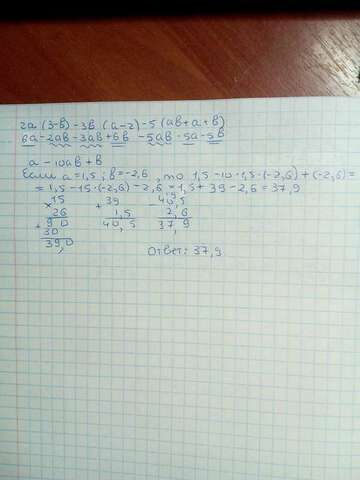 2a (3-в)-3в (а-2)-5 (ав+а+в)
6а-2ав-3ав+6в -5ав-5а-5в
а-10ав+в
Если а=1,5 ; в=-2,6 , то 1,5-10·1,5·(-2,6)+(-2,6)=
= 1,5-15·(-2,6)-2,6=1,5+39-2,6=37,9
× 15 + 39 - 40,5
26 1,5 2,6
+ 90 40,5 37,9
30
39,0 Ответ: 37,9